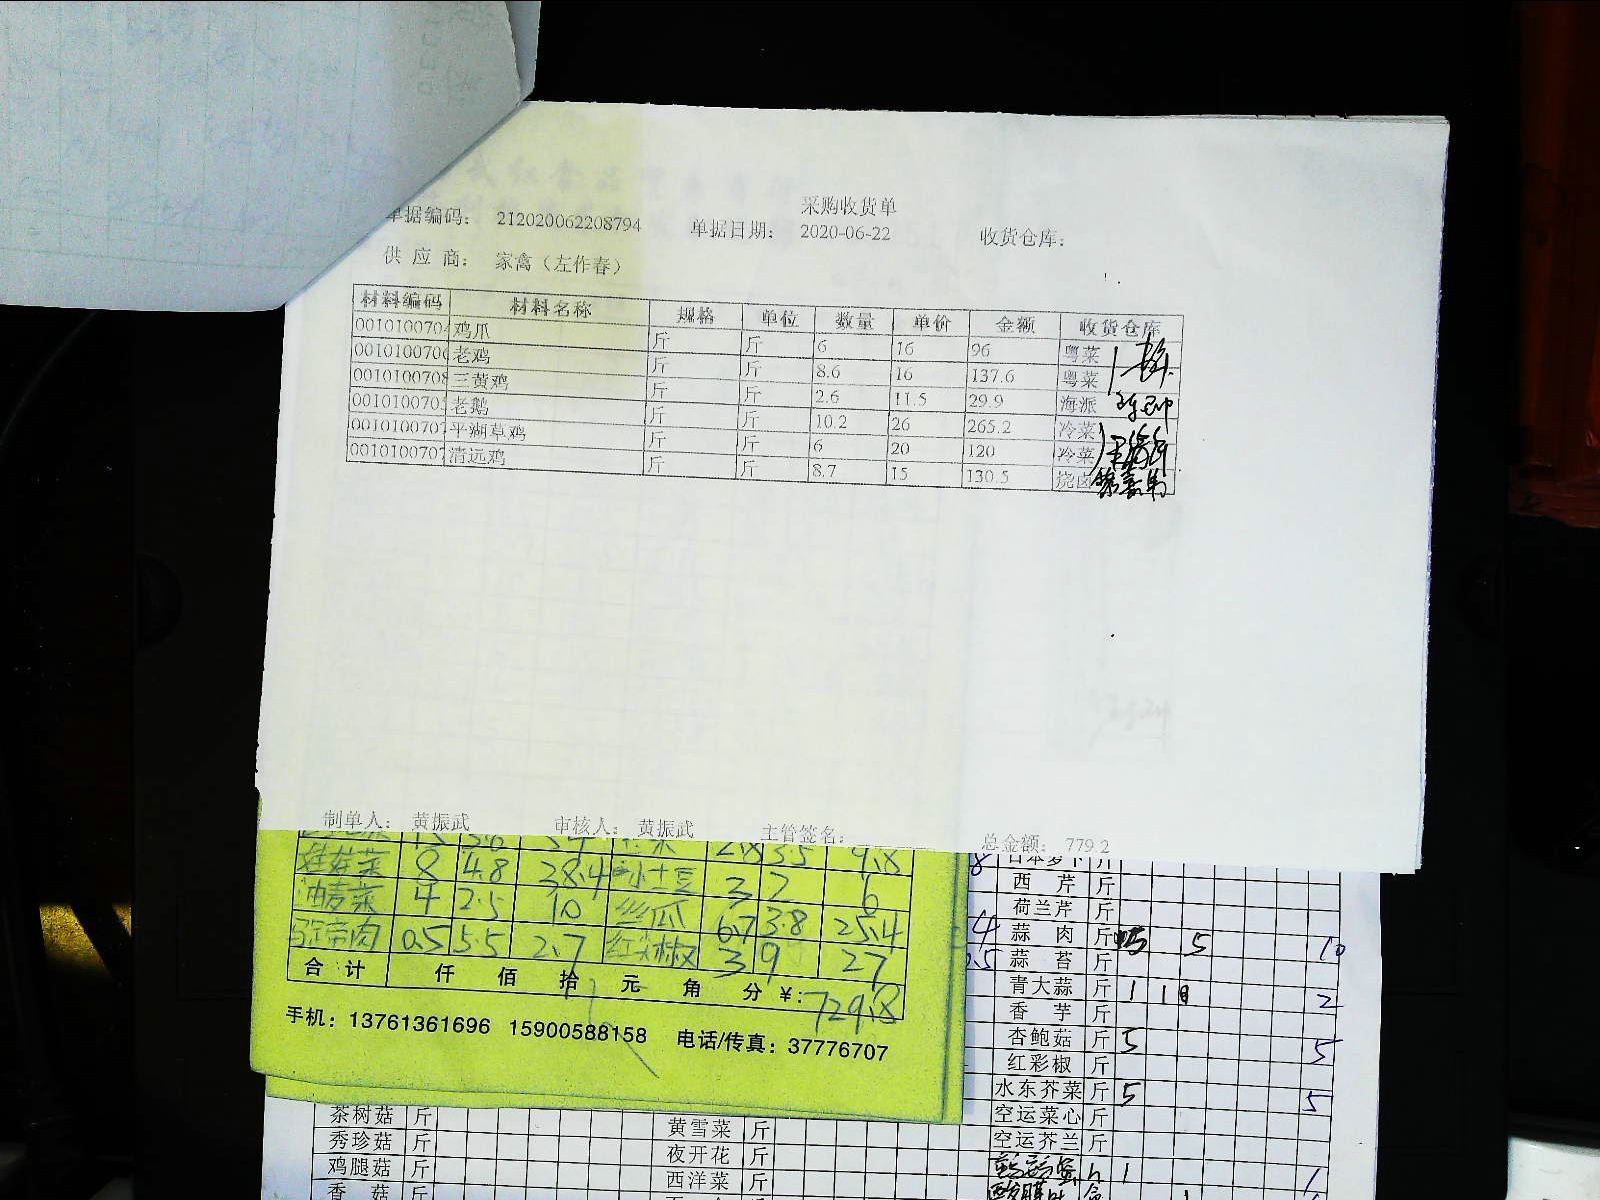 采购收货单
单据编码： 212020062208794 单据日期： 2020-06-22 收货仓库：
供 应 商： 家禽（左作春）
材料编码 材料名称 规格 单位 数量 单价 金额 收货仓库
0010100704 鸡爪 斤 斤 6 16 96 粤菜
0010100706 老鸡 斤 斤 8.6 16 137.6 粤菜
0010100708 三黄鸡 斤 斤 2.6 11.5 29.9 海派
001010070 老鹅 斤 斤 10.2 26 265.2 冷菜
0010100707 平湖草鸡 斤 斤 6 20 120 冷菜
0010100707 清远鸡 斤 斤 8.7 15 130.5 烧卤
制单人： 黄振武 审核人： 黄振武 主管签名： 总金额： 779.2
2.8 3.5 9.8
娃娃菜 8 4.8 38.4 小土豆 3 2 6
油麦菜 4 2.5 10 丝瓜 6.7 3.8 25.4
0.5 5.5 2.7 红尖椒 3 9 27
合 计 仟 佰 拾 元 角 分 ¥: 729.8
手机：13761361696 15900588158 电话/传真：37776707
日本萝卜 斤
西 芹 斤
荷兰芹 斤
蒜 肉 斤 5 10
蒜 苔 斤
青大蒜 斤 1 1 2
香 芋 斤
杏鲍菇 斤 5 5
红彩椒 斤
水东芥菜 斤 5 5
空运菜心 斤
空运芥兰 斤
1 1
茶树菇 斤 黄雪菜 斤
秀珍菇 斤 夜开花 斤
鸡腿菇 斤 西洋菜 斤
香 菇 斤